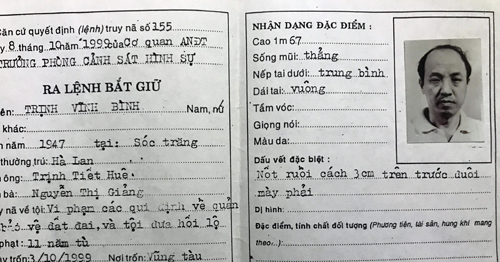 Căn cứ quyết định (lệnh) truy nã số 155
8 tháng 10 năm 1999 của Cơ quan ANĐT
TRƯỞNG PHÒNG CẢNH SÁT HÌNH SỰ
RA LỆNH BẮT GIỮ
ên: TRỊNH VĨNH BÌNH Nam, nữ
khác:
năm 1947 tại: Sóc trăng
thường trú: Hà Lan
ông: Trịnh Tiết Huê
bà: Nguyễn Thị Giảng
y nã về tội: Vi phạm các qui định về quản
về đất đai, và tội đưa hối lộ
phạt: 11 năm tù
trốn: 3/10/1999 Nơi trốn: Vũng tàu
NHẬN DẠNG ĐẶC ĐIỂM :
Cao 1m 67
Sống mũi: thẳng
Nếp tai dưới: trung bình
Dái tai: vuông
Tầm vóc:
Giọng nói:
Màu da:
Dấu vết đặc biệt :
Nốt ruồi cách 3cm trên trước đuôi
mày phải
Dị hình:
Đặc điểm, tính chất đối tượng (Phương tiện, tài sản, hung khí mang
theo...)